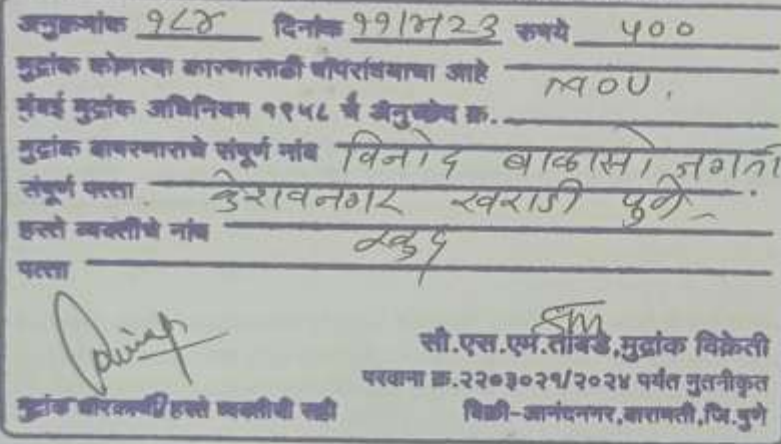 अनुक्रमांक ९८४ दिनांक ११/४/२३ रुपये ५००
मुद्रांक कोणत्या कारणासाठी वापरावयाचा आहे MOU.
मुंबई मुद्रांक अधिनियम १९५८ चे अनुच्छेद क्र.
मुद्रांक वापरणाराचे संपूर्ण नांव विनोद बाळासो जगताप
संपूर्ण पत्ता केशवनगर खराडी पुणे
हस्ते व्यक्तीचे नांव खुद्द
पत्ता
सौ.एस.एम.तावडे,मुद्रांक विक्रेती
परवाना क्र.२२०३०२१/२०२४ पर्यंत नुतनीकृत
मुद्रांक धारकाची/हस्ते व्यक्तीची सही विक्री-आनंदनगर,बारामती,जि.पुणे